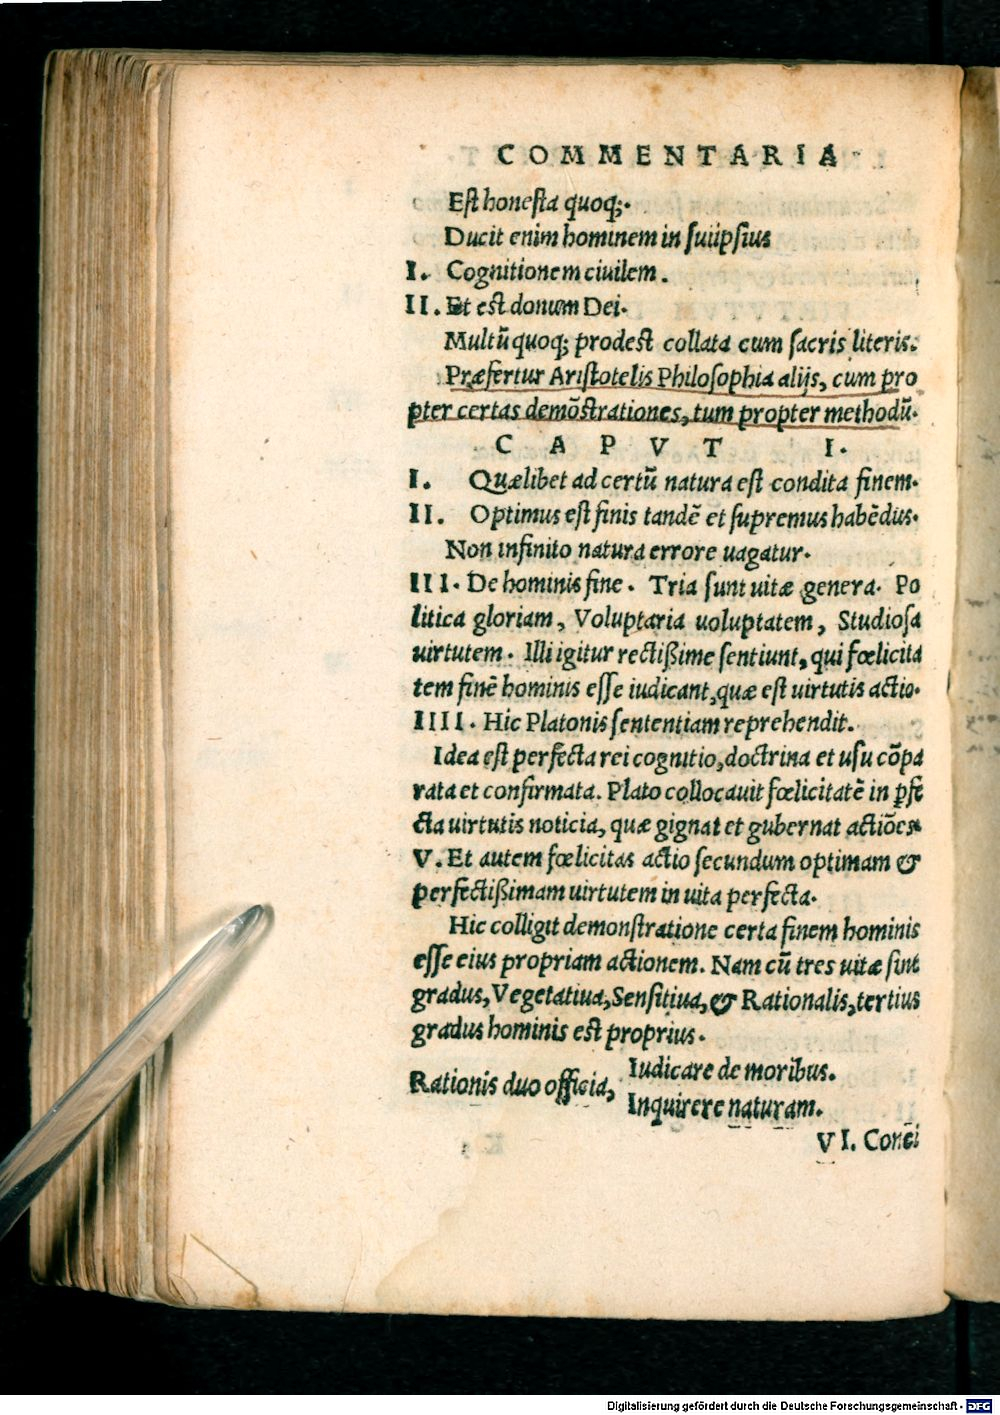 COMMENTARIA
Est honesta quoq;.
Ducit enim hominem in suiipsius
I. Cognitionem ciuilem.
II. Et est donum Dei.
Multũ quoq; prodest collata cum sacris literis.
Præfertur Aristotelis Philosophia alijs, cum pro
pter certas demõstrationes, tum propter methodũ.
CAPVT I.
I. Quælibet ad certũ natura est condita finem.
II. Optimus est finis tandẽ et supremus habẽdus.
Non infinito natura errore uagatur.
III. De hominis fine. Tria sunt uitæ genera. Po
litica gloriam, Voluptaria uoluptatem, Studiosa
uirtutem. Illi igitur rectißime sentiunt, qui fœlicita
tem finẽ hominis esse iudicant, quæ est uirtutis actio.
IIII. Hic Platonis sententiam reprehendit.
Idea est perfecta rei cognitio, doctrina et usu cõpa
rata et confirmata. Plato collocauit fœlicitatẽ in ꝑfe
cta uirtutis noticia, quæ gignat et gubernat actiões.
V. Et autem fœlicitas actio secundum optimam &
perfectißimam uirtutem in uita perfecta.
Hic colligit demonstratione certa finem hominis
esse eius propriam actionem. Nam cũ tres uitæ sint
gradus, Vegetatiua, Sensitiua, & Rationalis, tertius
gradus hominis est proprius.
Rationis duo officia,
Iudicare de moribus.
Inquirere naturam.
VI. Conci
Digitalisierung gefördert durch die Deutsche Forschungsgemeinschaft - DFG